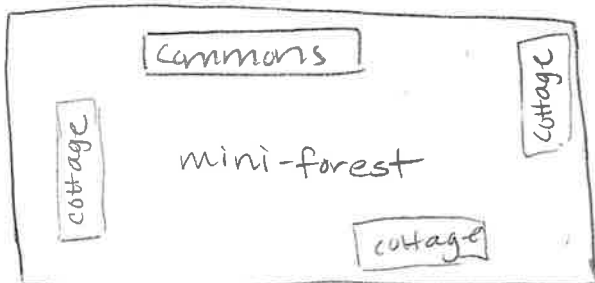 Commons
cottage
cottage
mini-forest
cottage